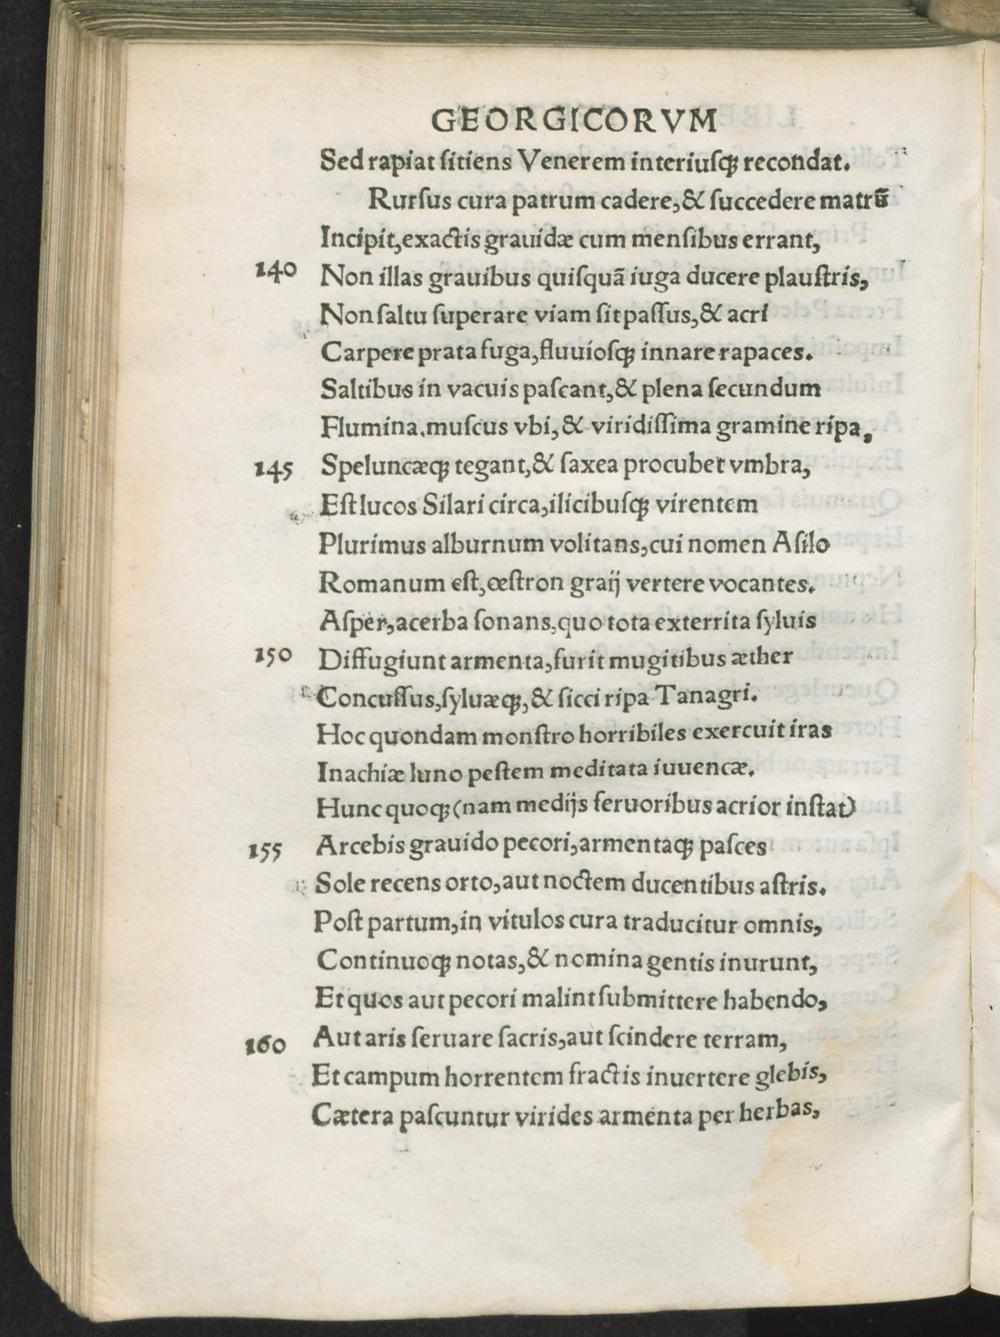 GEORGICORVM
Sed rapiat ſitiens Venerem interiuſq; recondat.
Rurſus cura patrum cadere, & ſuccedere matrū
Incipit, exactis grauidæ cum menſibus errant,
140 Non illas grauibus quiſquã iuga ducere plauſtris,
Non ſaltu ſuperare viam ſit paſſus, & acri
Carpere prata fuga, fluuioſq; innare rapaces.
Saltibus in vacuis paſcant, & plena ſecundum
Flumina, muſcus vbi, & viridiſſima gramine ripa,
145 Speluncæq; tegant, & ſaxea procubet vmbra,
Eſt lucos Silari circa, ilicibuſq; virentem
Plurimus alburnum volitans, cui nomen Aſilo
Romanum eſt, œſtron graij vertere vocantes.
Aſper, acerba ſonans, quo tota exterrita ſyluis
150 Diffugiunt armenta, furit mugitibus æther
Concuſſus, ſyluæq;, & ſicci ripa Tanagri.
Hoc quondam monſtro horribiles exercuit iras
Inachiæ Iuno peſtem meditata iuuencæ.
Hunc quoq; (nam medijs feruoribus acrior inſtat)
155 Arcebis grauido pecori, armentaq; paſces
Sole recens orto, aut noctem ducentibus aſtris.
Poſt partum, in vitulos cura traducitur omnis,
Continuoq; notas, & nomina gentis inurunt,
Et quos aut pecori malint ſubmittere habendo,
160 Aut aris ſeruare ſacris, aut ſcindere terram,
Et campum horrentem fractis inuertere glebis,
Cætera paſcuntur virides armenta per herbas,